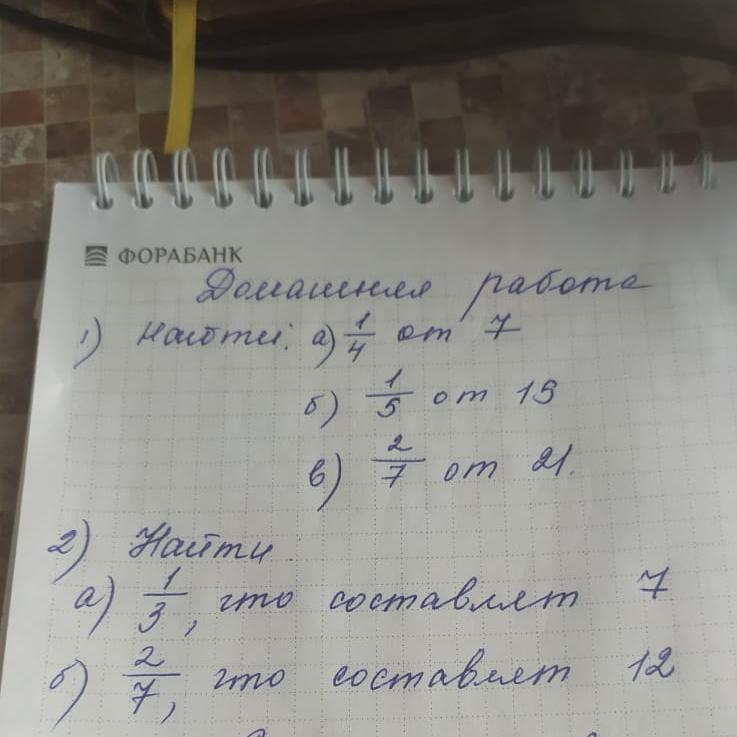 ФОРАБАНК
Домашняя работа
1) Найти: а) 1/4 от 7
б) 1/5 от 15
в) 2/7 от 21.
2) Найти
а) 1/3, что составляет 7
б) 2/7, что составляет 12